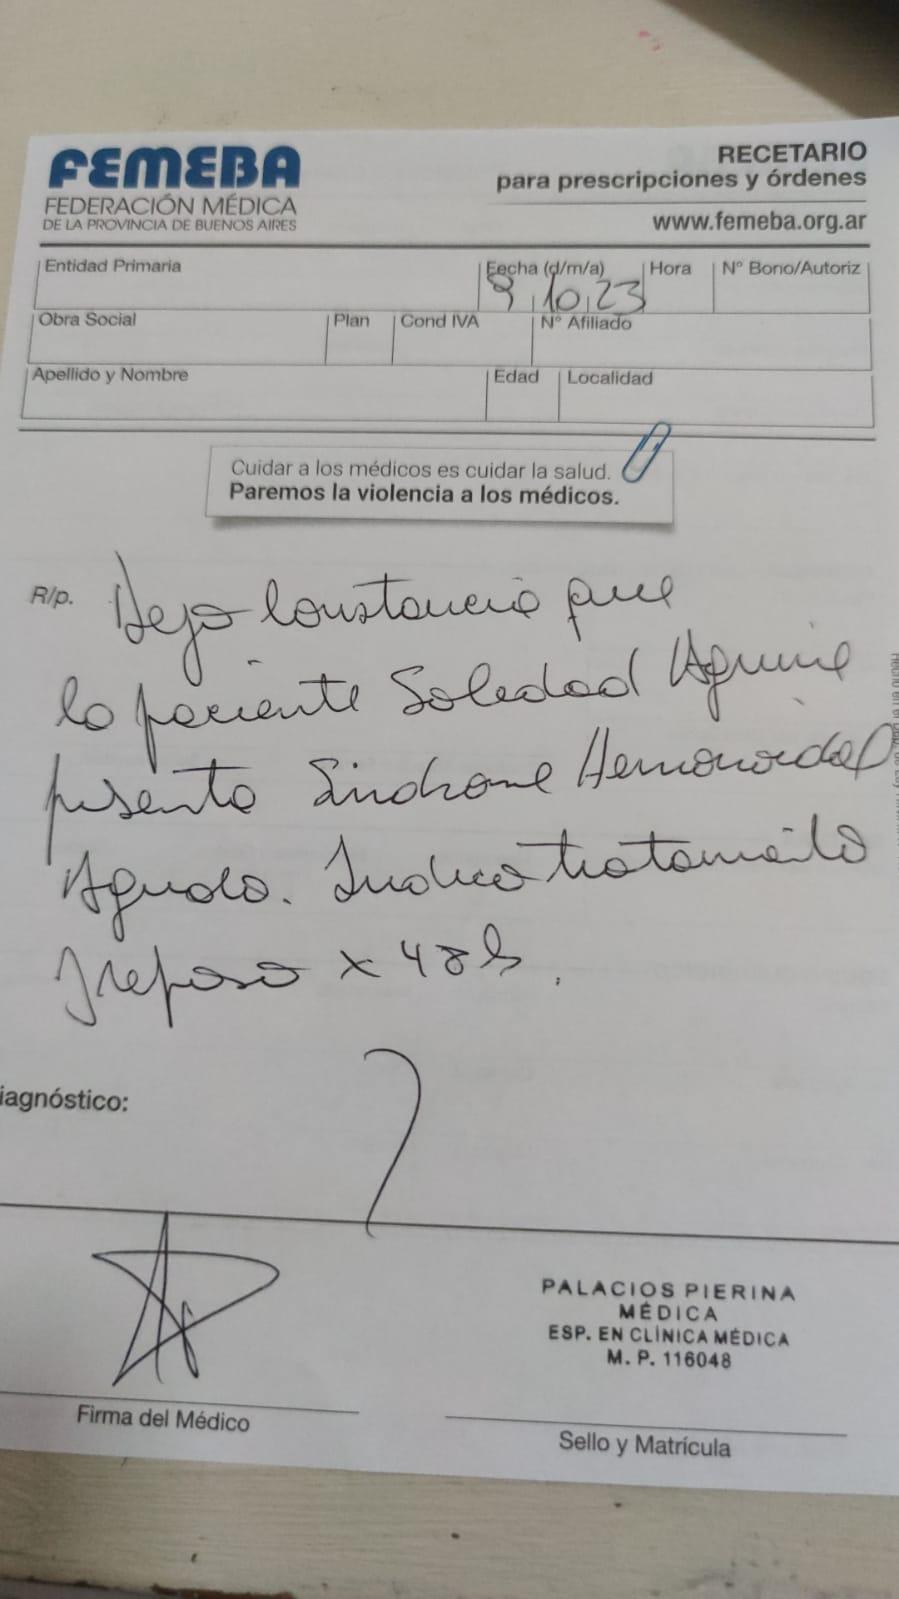 FEMEBA
FEDERACIÓN MÉDICA
DE LA PROVINCIA DE BUENOS AIRES
RECETARIO
para prescripciones y órdenes
www.femeba.org.ar
Entidad Primaria
Fecha (d/m/a) Hora Nº Bono/Autoriz
9 10 23
Obra Social Plan Cond IVA Nº Afiliado
Apellido y Nombre Edad Localidad
Cuidar a los médicos es cuidar la salud.
Paremos la violencia a los médicos.
R/p. Dejo constancia que
la paciente Soledad Aguirre
presenta Sindrome Hemorroidal
Agudo. Indico tratamiento
y reposo x 48 hs.
iagnóstico:
PALACIOS PIERINA
MÉDICA
ESP. EN CLÍNICA MÉDICA
M. P. 116048
Firma del Médico
Sello y Matrícula